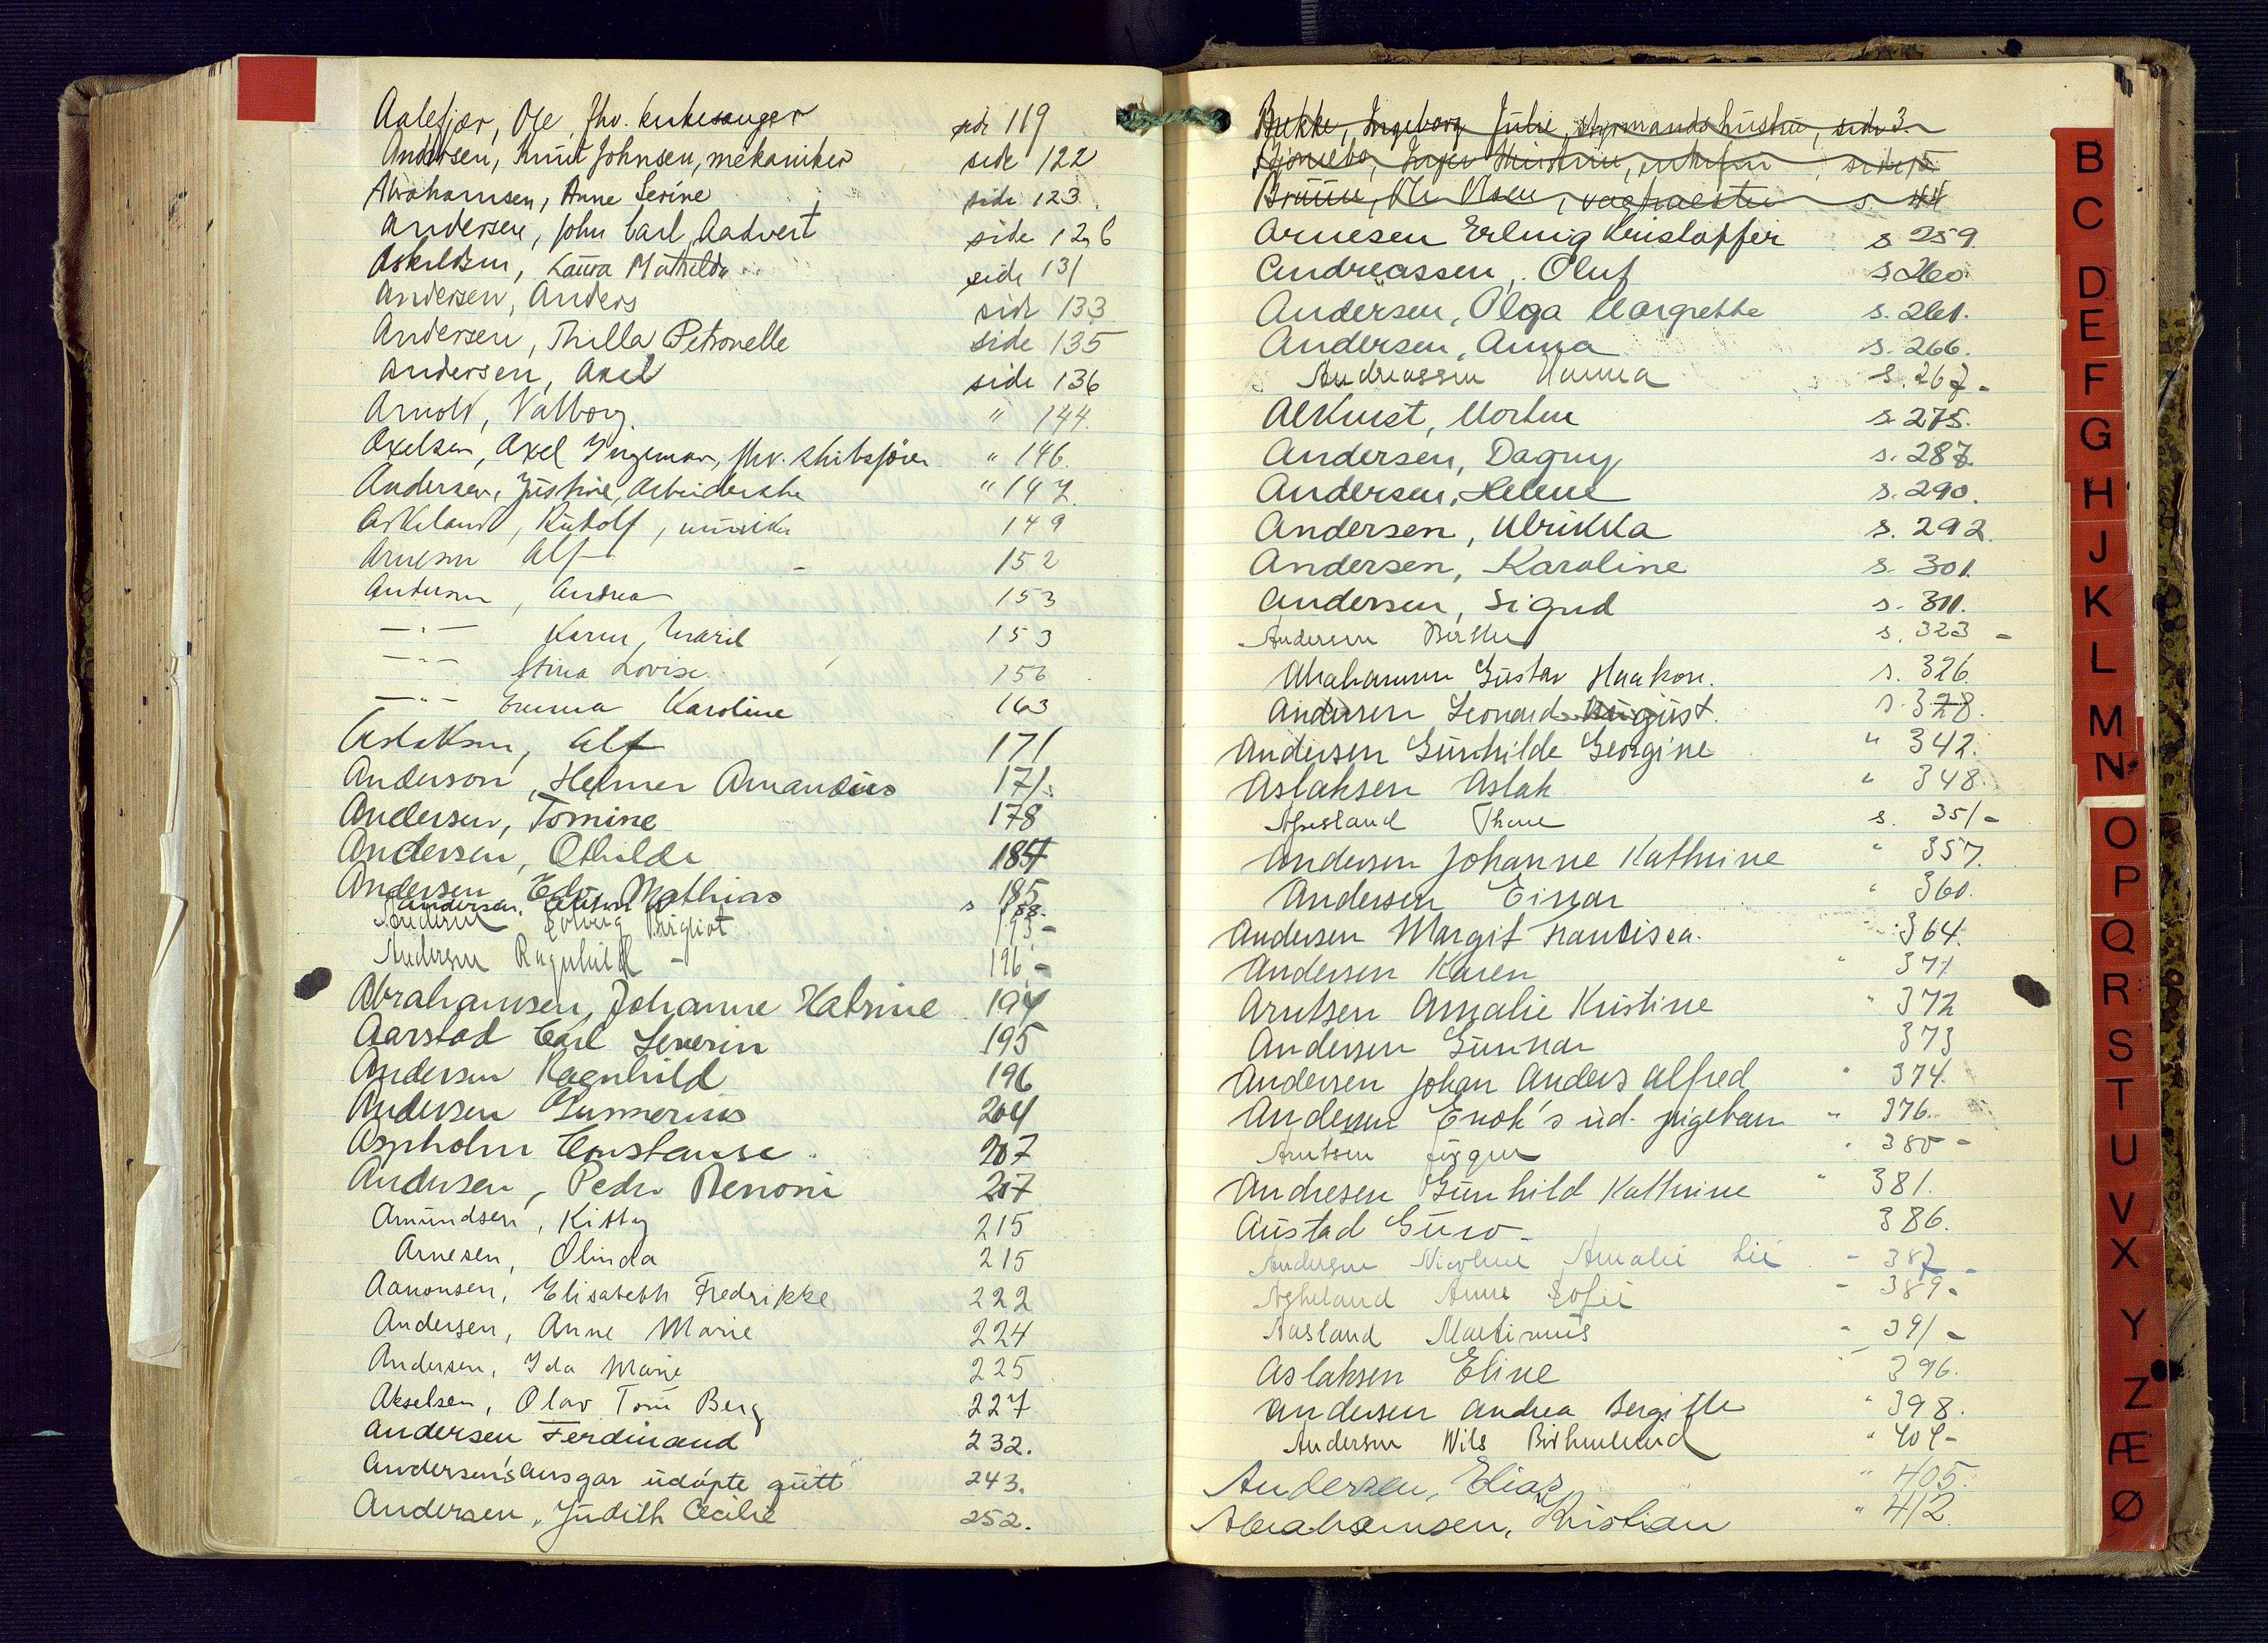 Aalefjær, Ole, fhv. kirkesanger side 119
Andersen, Knut Johnsen, mekaniker side 122
Abrahamsen, Anne Serine side 123
Andersen, John Carl Aadvert side 126
Askildsen, Laura Mathilda side 131
Andersen, Anders side 133
Andersen, Thilla Petronelle side 135
Andersen, Axel side 136
Arnold, Valborg. " 144
Axelsen, Axel Ingemar, fhv. skibsfører " 146.
Andersen, Justine, Arbeiderske " 147
Askeland, Rudolf, musiker 149
Arnesen Alf 152
Andersen, Andrea 153
—"— Karen Maril 153
—"— Stina Lovise 156
—"— Emma Karoline 163
Aslaksen, Alf 171
Anderson, Helmer Amandus 171
Andersen, Tomine 178
Andersen, Othilde 184
Andersen Edv. Mathias 185
Andersen, Anton s 188.
Andersen Solveig Bergliot 193-
Andersen Ragnhild - 196-
Abrahamsen, Johanne Katrine 194
Aarstad Carl Severin 195
Andersen Ragnhild 196
Andersen Gunnerius 204
Aspholm Constanse. 207
Andersen, Peder Benoni 207
Amundsen, Kitty 215
Arnesen, Olinda 215
Aanonsen, Elisabeth Fredrikke 222
Andersen, Anne Marie 224
Andersen, Ida Marie 225
Akselsen, Olav Tom Berg 227
Andersen Ferdinand 232.
Andersen's Ansgar udøpte gutt 243.
Andersen, Judith Cecilie 252.
Bukke, Ingeborg Julie, styrmandshustru, side 3.
Inger Kirstine, side 15
Bruun, Ole Olsen, s. 44
Arnesen Erling Kristoffer s 259.
Andreassen, Oluf s 260
Andersen, Olga Margrethe s. 261.
Andersen, Anna s. 266.
Andreassen Hanna s. 267-
Alkvist, Morten s. 275.
Andersen, Dagny s. 287
Andersen, Helene s. 290.
Andersen, Ulrikka s. 292.
Andersen, Karoline s. 301.
Andersen, Sigurd s. 311.
Andersen Berthe s. 323 -
Abrahamsen Gustav Haakon. s. 326.
Andersen Leonard August. s. 328.
Andersen Gunhilde Georgine " 342.
Aslaksen Aslak " 348.
Apesland Thore s. 351-
Andersen Johanne Kathrine " 357.
Andersen Einar " 360.
Andersen Margit Francisca. " 364.
Andersen Karen " 371
Arntsen Amalie Kristine " 372
Andersen Gunnar 373
Andersen Johan Anders Alfred " 374.
Andersen Enok's ud. pigebarn " 376.
Arntsen Jørgen " 380-
Andresen Gunhild Kathrine " 381.
Austad Guro - 386.
Andersen Nicoline Amalie Lie - 387 -
Askeland Anne Sofie - 389-
Aasland Martinius - 391-
Aslaksen Eline " 396.
Andersen Andrea Bergitte " 398.
Andersen Nils " 404-
Andersen, Elias " 405.
Abrahamsen, Kristian " 412.
B
C
D
E
F
G
H
J
K
L
M
N
O
P
Q
R
S
T
U
V
X
Y
Z
Æ
Ø